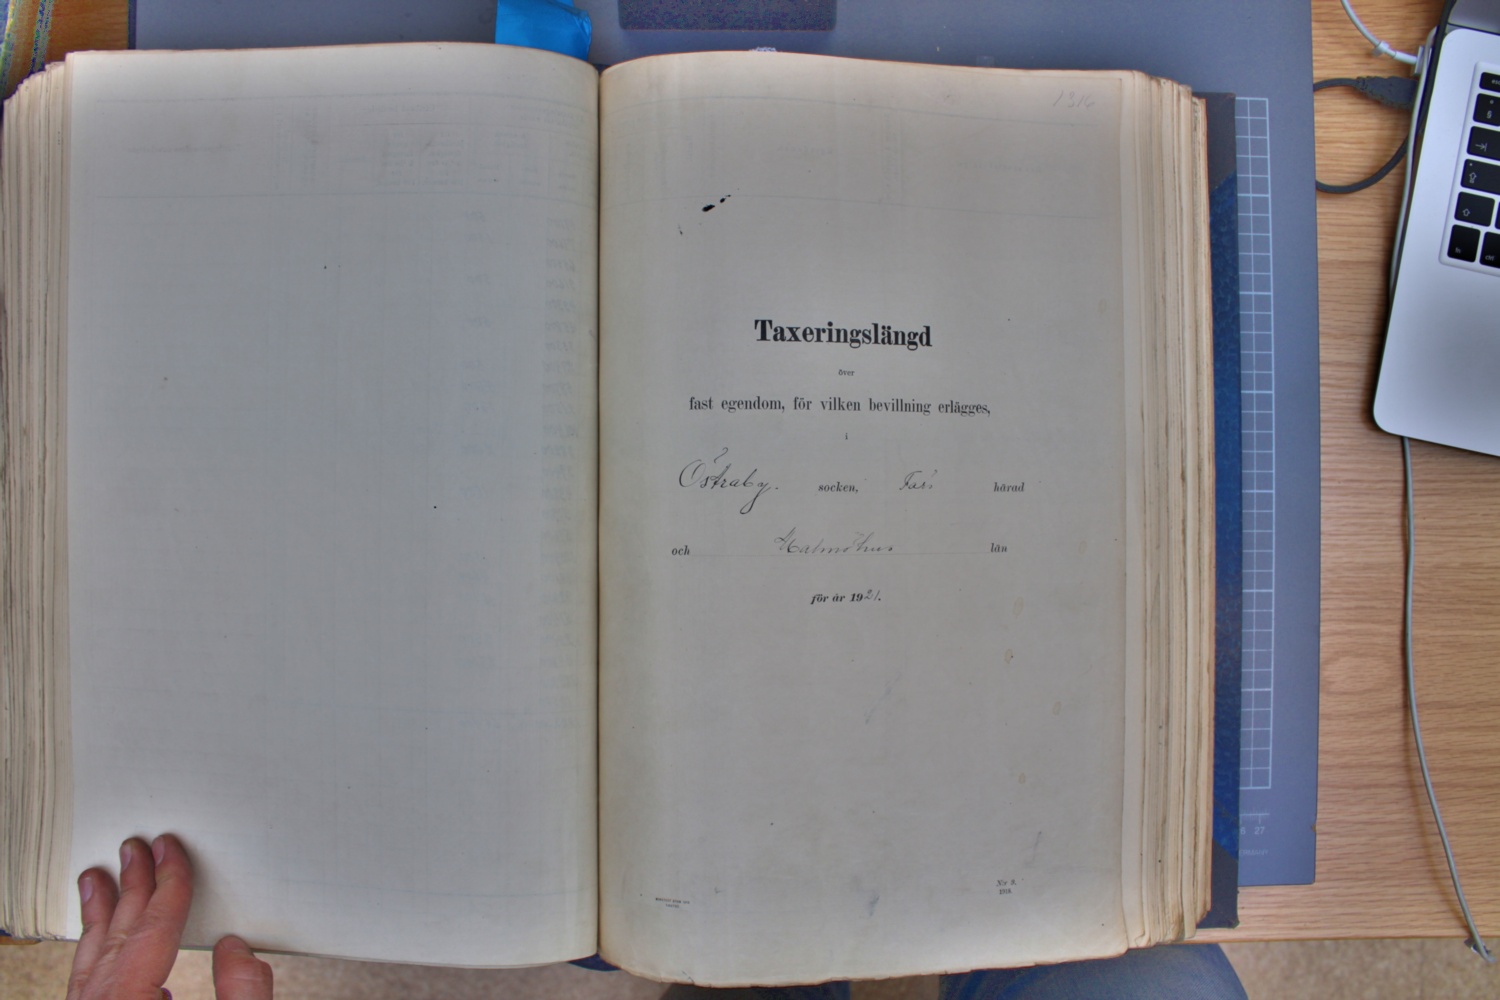 1316
Taxeringslängd
över
fast egendom, för vilken bevillning erlägges,
i
Östraby. socken, Färs härad
och Malmöhus län
för år 1921.
N:r 9.
27